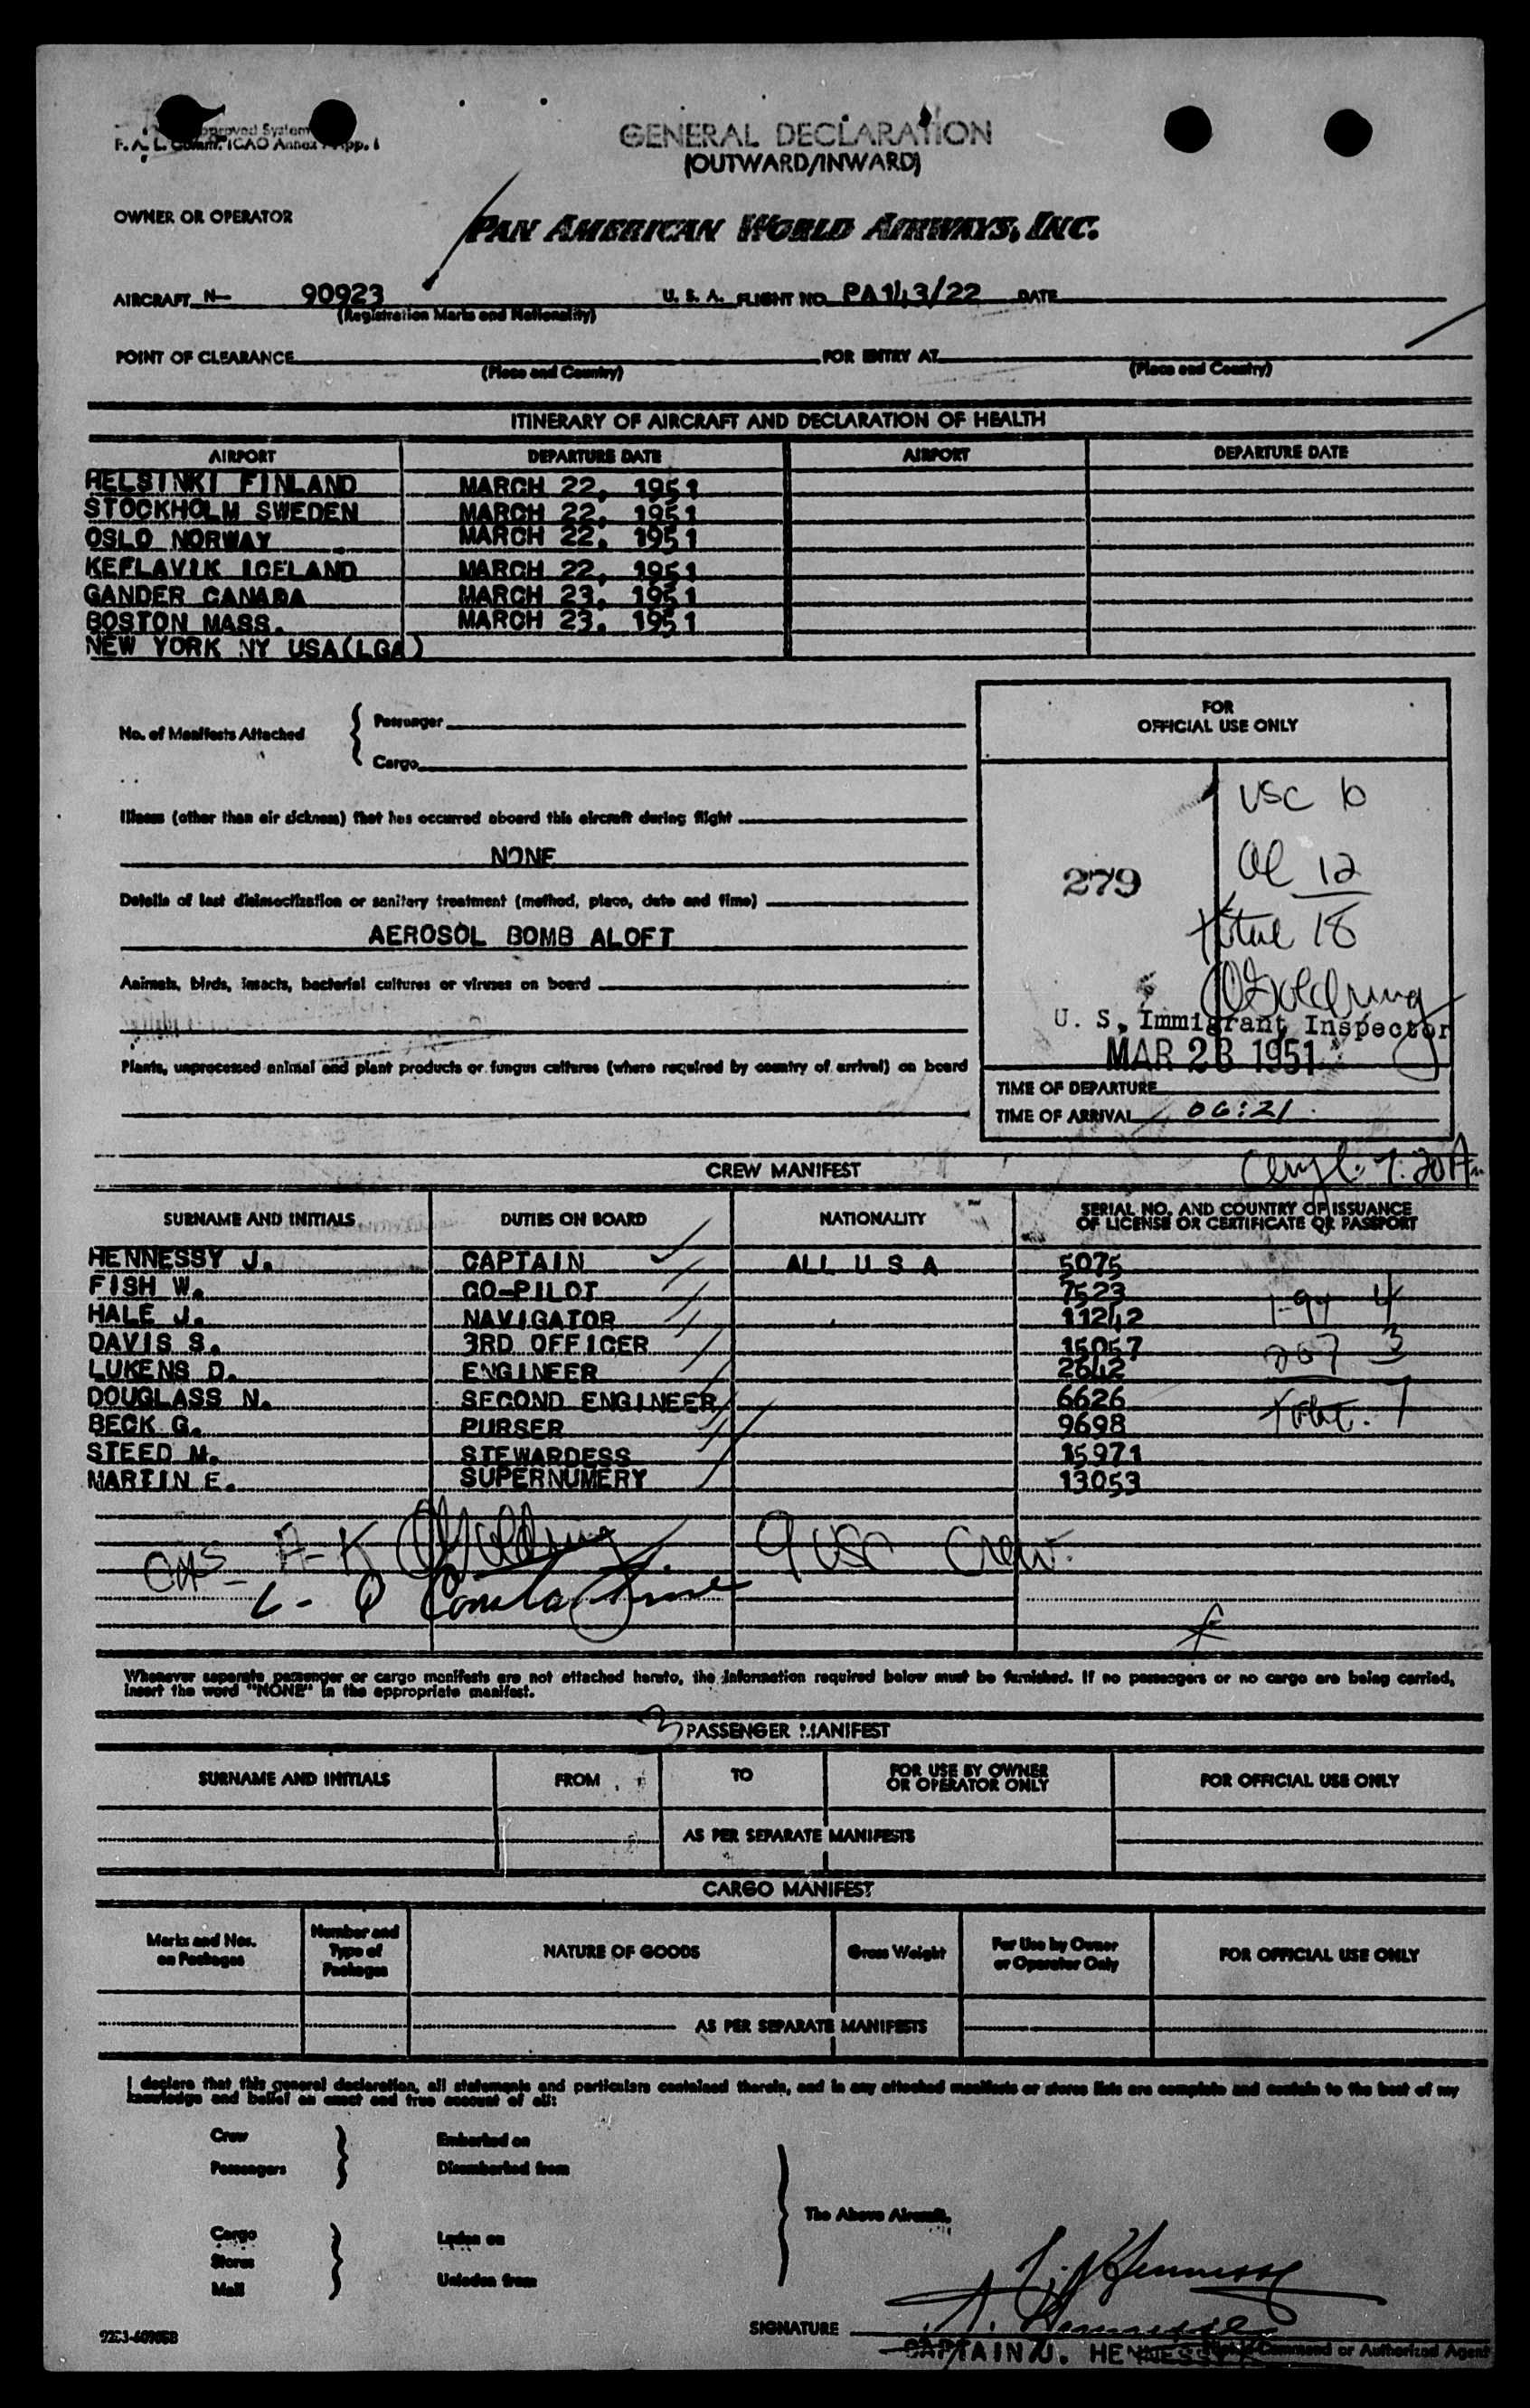 Approved System
F. A. L. Comm. ICAO Annex App. 1
GENERAL DECLARATION
(OUTWARD/INWARD)
OWNER OR OPERATOR
PAN AMERICAN WORLD AIRWAYS, INC.
AIRCRAFT N- 90923 U. S. A. FLIGHT NO. PA143/22 DATE
(Registration Marks and Nationality)
POINT OF CLEARANCE FOR ENTRY AT
(Place and Country) (Place and Country)
ITINERARY OF AIRCRAFT AND DECLARATION OF HEALTH
AIRPORT DEPARTURE DATE AIRPORT DEPARTURE DATE
HELSINKI FINLAND MARCH 22, 1951
STOCKHOLM SWEDEN MARCH 22, 1951
OSLO NORWAY MARCH 22, 1951
KEFLAVIK ICELAND MARCH 22, 1951
GANDER CANADA MARCH 23, 1951
BOSTON MASS. MARCH 23, 1951
NEW YORK NY USA(LGA)
No. of Manifests Attached { Passenger
Cargo
Illness (other than air sickness) that has occurred aboard this aircraft during flight
NONE
Details of last disinsectization or sanitary treatment (method, place, date and time)
AEROSOL BOMB ALOFT
Animals, birds, insects, bacterial cultures or viruses on board
Plants, unprocessed animal and plant products or fungus cultures (where required by country of arrival) on board
FOR
OFFICIAL USE ONLY
USC 6
al 12
279
total 18
U. S. Immigrant Inspector
MAR 23 1951
TIME OF DEPARTURE
TIME OF ARRIVAL 06:21
CREW MANIFEST
7:20 A
SURNAME AND INITIALS DUTIES ON BOARD NATIONALITY SERIAL NO. AND COUNTRY OF ISSUANCE
OF LICENSE OR CERTIFICATE OR PASSPORT
HENNESSY J. CAPTAIN ALL U S A 5075
FISH W. CO-PILOT 7523
HALE J. NAVIGATOR 11242 4
DAVIS S. 3RD OFFICER 15057 3
LUKENS D. ENGINEER 2642
DOUGLASS N. SECOND ENGINEER 6626 Total. 7
BECK G. PURSER 9698
STEED M. STEWARDESS 15971
MARTIN E. SUPERNUMERY 13053
A-K 9 USC Crew.
L- Q
Whenever separate passenger or cargo manifests are not attached hereto, the information required below must be furnished. If no passengers or no cargo are being carried,
insert the word "NONE" in the appropriate manifest.
3 PASSENGER MANIFEST
SURNAME AND INITIALS FROM TO FOR USE BY OWNER
OR OPERATOR ONLY FOR OFFICIAL USE ONLY
AS PER SEPARATE MANIFESTS
CARGO MANIFEST
Marks and Nos.
on Packages Number and
Type of
Packages NATURE OF GOODS Gross Weight For Use by Owner
or Operator Only FOR OFFICIAL USE ONLY
AS PER SEPARATE MANIFESTS
I declare that this general declaration, all statements and particulars contained therein, and in any attached manifests or stores lists are complete and contain to the best of my
knowledge and belief an exact and true account of all:
Crew Embarked on
Passengers Disembarked from
The Above Aircraft.
Cargo Laden on
Stores
Mail Unladen from
J. Hennessy
SIGNATURE J. Hennessy
CAPTAIN J. HENNESSY Command or Authorized Agent